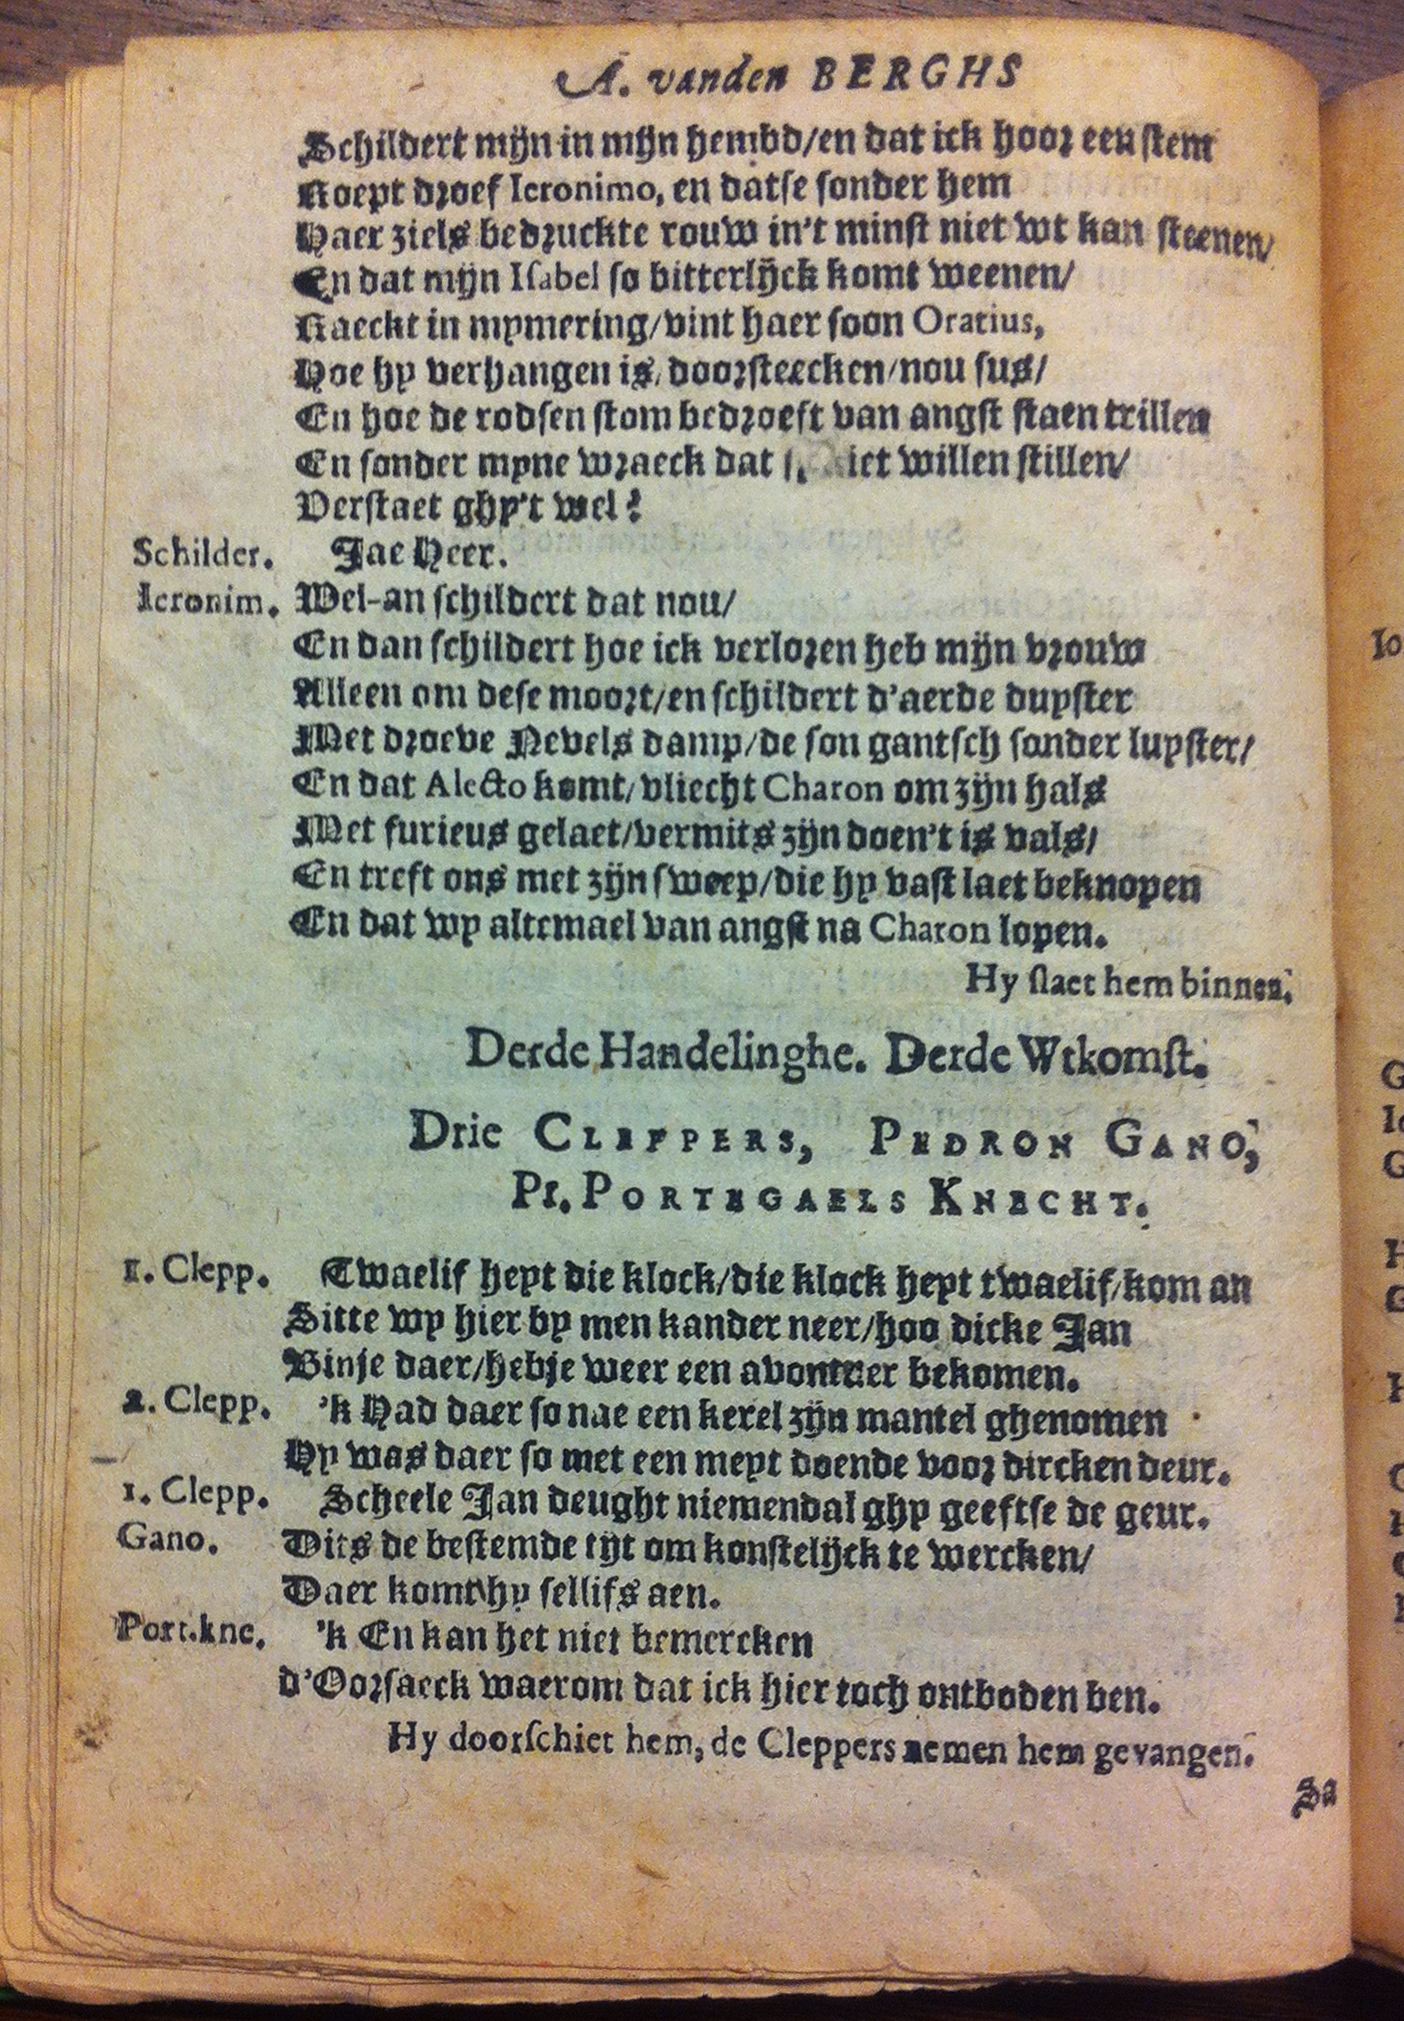 A. vanden BERGHS
Schildert mijn in mijn hembd/en dat ick hoor een stem
Roept droef Ieronimo, en datse sonder hem
Haer ziels bedruckte rouw in't minst niet wt kan steenen/
En dat mijn Isabel so bitterlijck komt weenen/
Naeckt in mymering/vint haer soon Oratius,
Hoe hy verhangen is/doorsteecken/nou sus/
En hoe de rodsen stom bedroeft van angst staen trillen
En sonder myne wraeck dat willen stillen/
Verstaet ghy't wel?
Schilder. Jae Heer.
Ieronim. Wel-an schildert dat nou/
En dan schildert hoe ick verloren heb mijn vrouw
Alleen om dese moort/en schildert d'aerde duyster
Met droeve Nevels damp/de son gantsch sonder luyster/
En dat Alecto komt/vliecht Charon om zijn hals
Met furieus gelaet/vermits zijn doen't is vals/
En treft ons met zijn sweep/die hy vast laet beknopen
En dat wy altemael van angst na Charon lopen.
Hy slaet hem binnen.
Derde Handelinghe. Derde Wtkomst.
Drie CLEPPERS, PEDRON GANO,
PI. PORTEGAELS KNECHT.
1. Clepp. Twaelif heyt die klock/die klock heyt twaelif/kom an
Sitte wy hier by men kander neer/hoo dicke Jan
Binje daer/hebje weer een avontuer bekomen.
2. Clepp. 'k Had daer so nae een kerel zijn mantel ghenomen
Hy was daer so met een meyt doende voor dircken deur.
1. Clepp. Scheele Jan deught niemendal ghy geeftse de geur.
Gano. Dits de bestemde tijt om konstelijck te wercken/
Daer komt hy sellifs aen.
Port.kne. 'k En kan het niet bemercken
d'Oorsaeck waerom dat ick hier toch ontboden ben.
Hy doorschiet hem, de Cleppers nemen hem gevangen.
Sa
Io
G
Ie
G
H
G